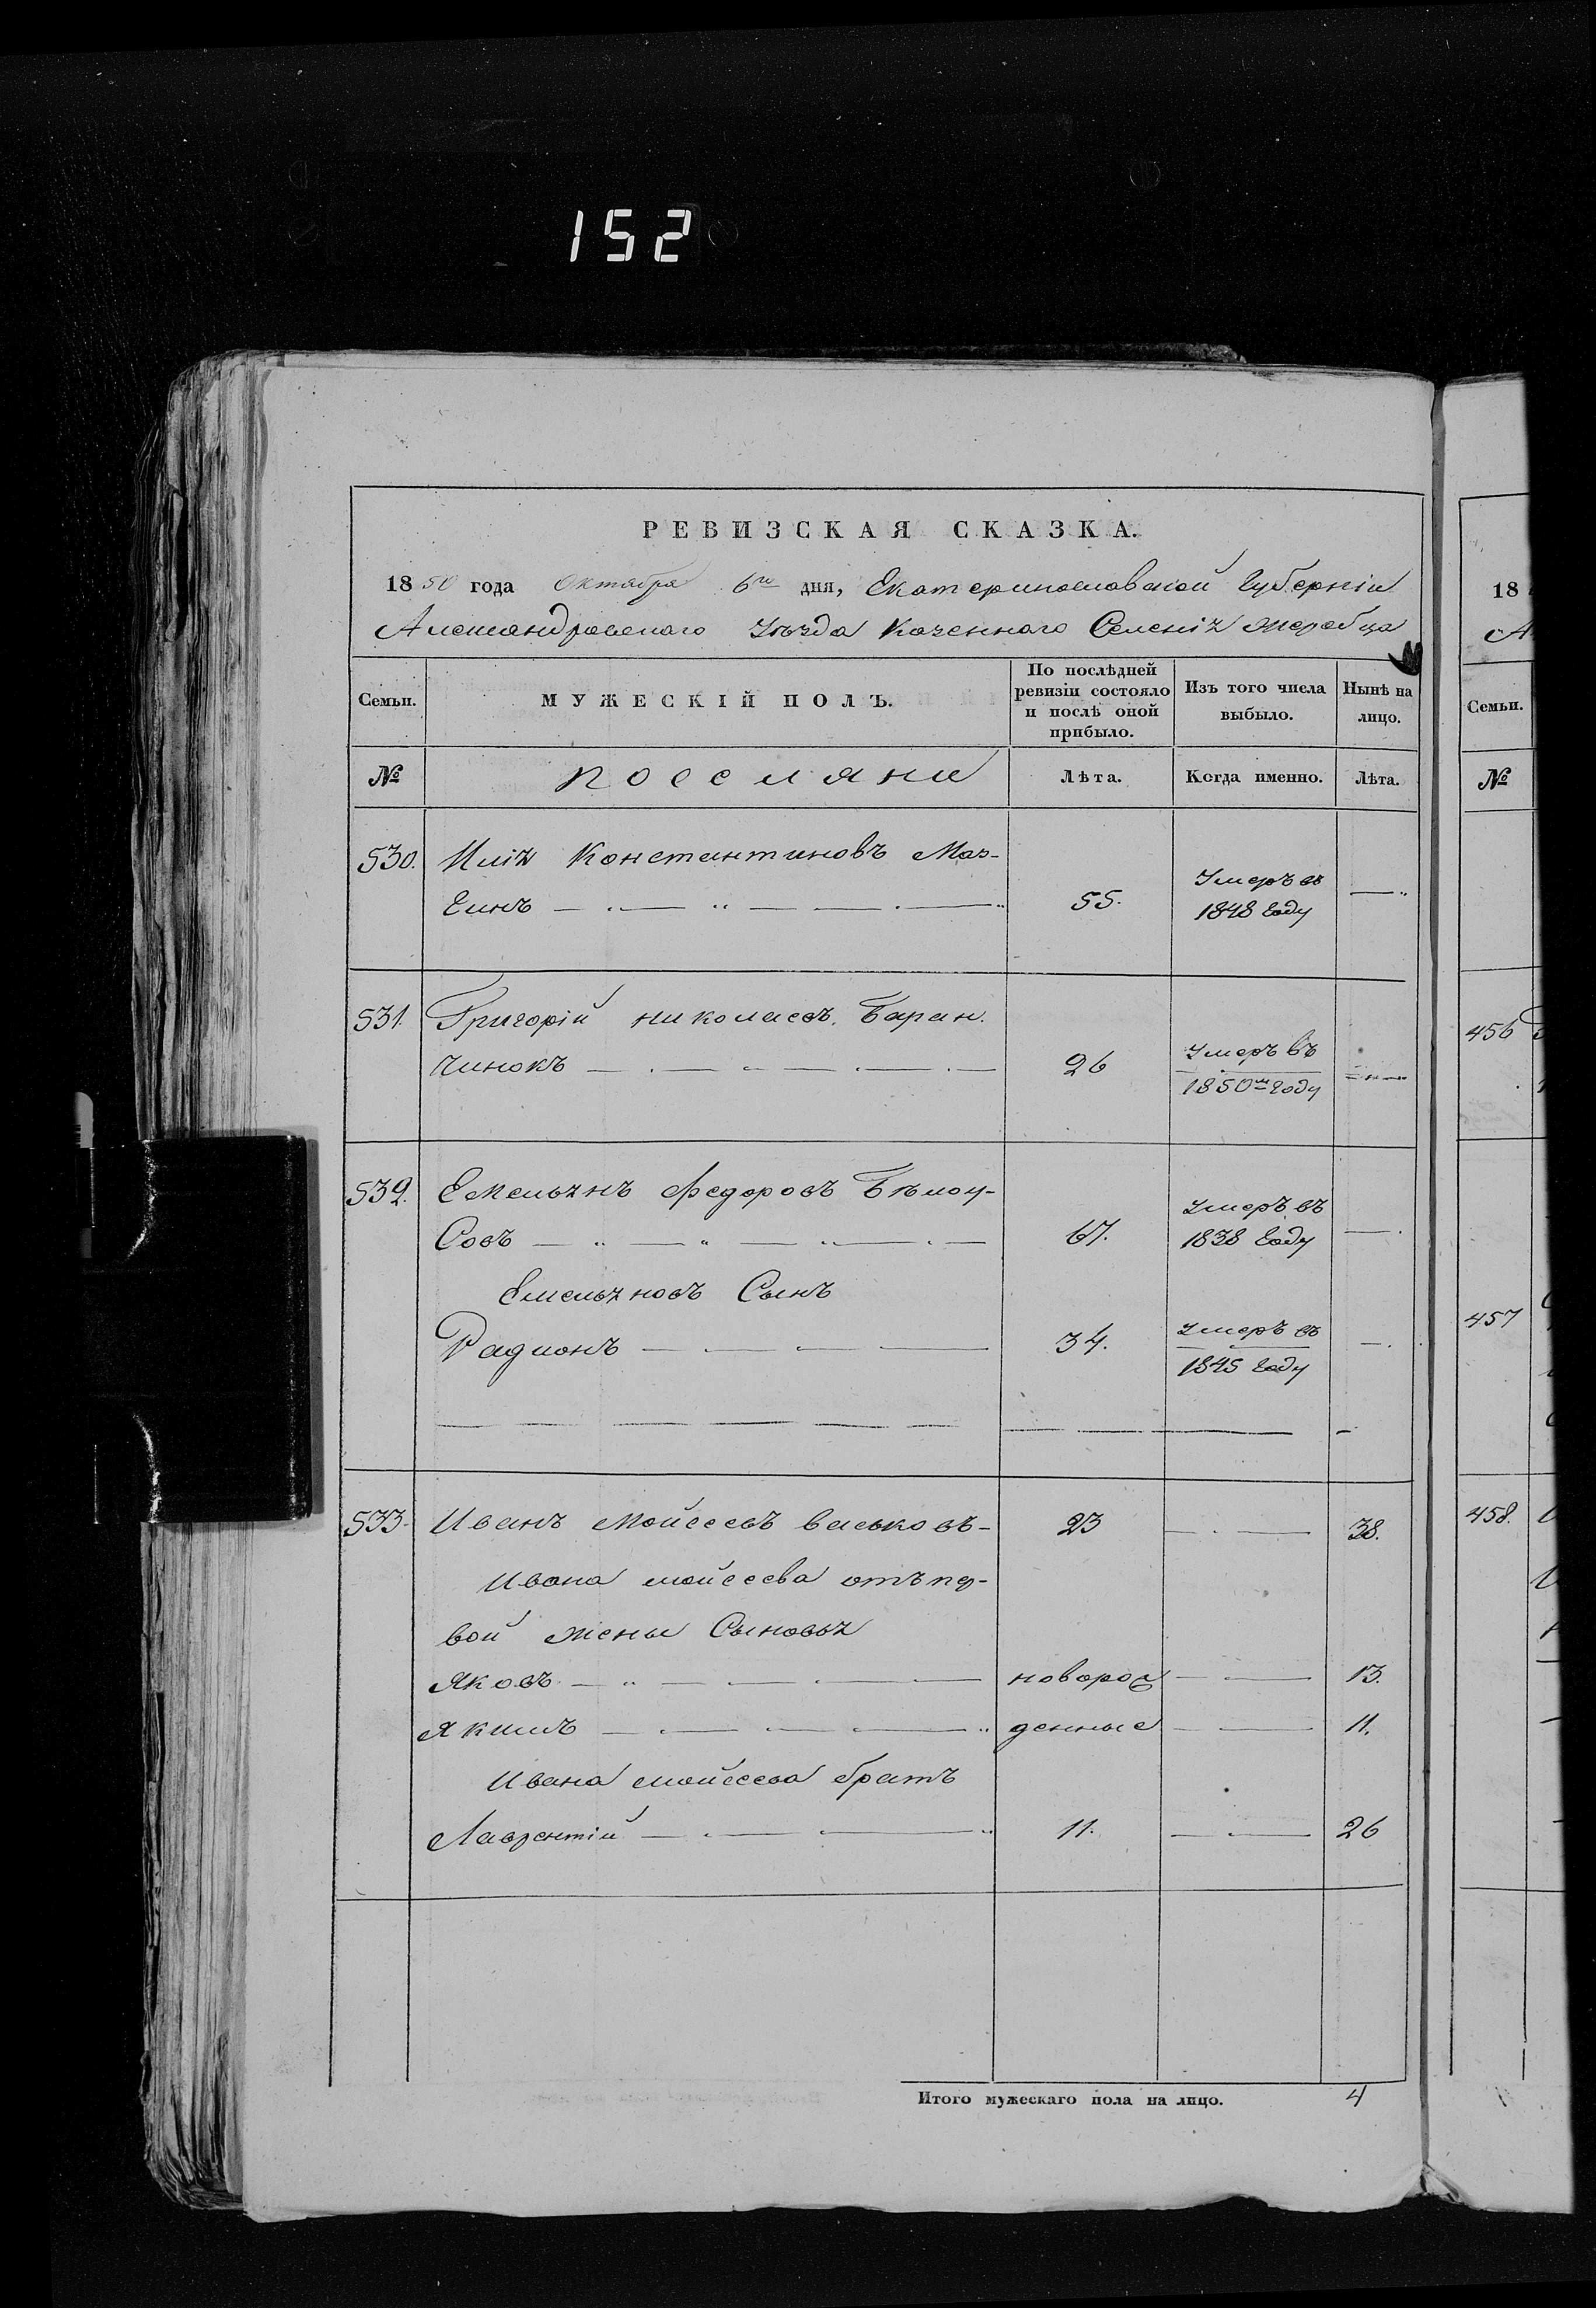 152
РЕВИЗСКАЯ СКАЗКА.
1850 года Октября 6го дня, Екатеринославской Губерніи
Александровскаго Уѣзда Казенного Селенія Жеребца
Семьи.
МУЖЕСКІЙ ПОЛЪ.
По послѣдней ревизіи состояло и послѣ оной прибыло.
Изъ того числа выбыло.
Нынѣ на лицо.
№
поселяне
Лѣта.
Когда именно.
Лѣта.
530. Илія Константиновъ Маз-
Умеръ въ
гинъ 55. 1848 году
531. Григорій Николаевъ Баран.
чинокъ 26 Умеръ въ
1850м году
532. Емельянъ Федоровъ Бѣлоу-
Умеръ въ
совъ 67. 1838 году
Емельяновъ Сынъ
Радионъ 34. Умеръ въ
1845 году
533. Иванъ Мойсеевъ Васьковъ- 23 38.
Ивана Мойсеева отъ пер-
вой жены Сыновья
Яковъ новорож 13.
Якимъ денные 11.
Ивана Мойсеева братъ
Лаврентій 11. 26
Итого мужескаго пола на лицо. 4
18
А
Семьи.
№
456
457
458.